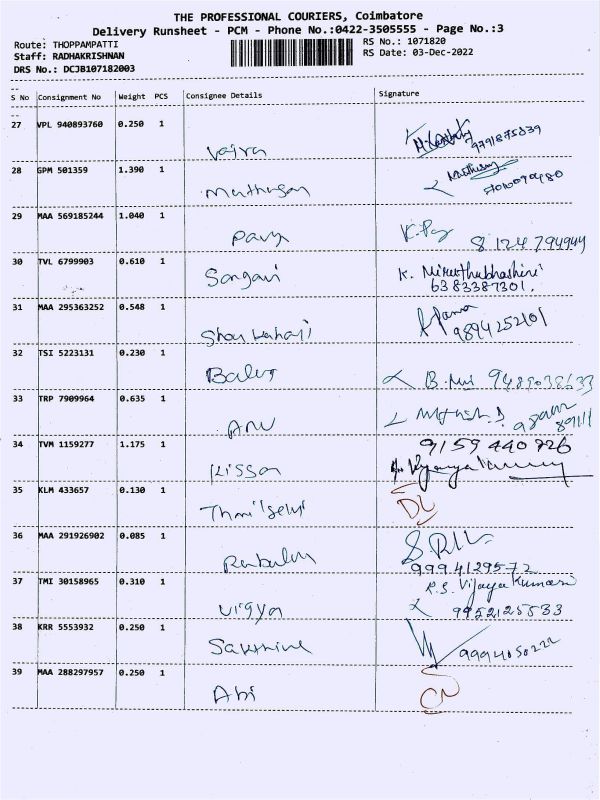 THE PROFESSIONAL COURIERS, Coimbatore
Delivery Runsheet - PCM - Phone No.:0422-3505555 - Page No.:3
Route: THOPPAMPATTI
RS No.: 1071820
Staff: RADHAKRISHNAN
RS Date: 03-Dec-2022
DRS No.: DCJB107182003
S No Consignment No Weight PCS Consignee Details Signature
27 VPL 940893760 0.250 1
Vajra
9791875839
28 GPM 501359 1.390 1
Muthusamy
29 MAA 569185244 1.040 1
Pavy
8124794949
30 TVL 6799903 0.610 1
Sangavi
K. Miruthubhashini
6383387301.
31 MAA 295363252 0.548 1
9894252101
32 TSI 5223131 0.230 1
Balu
33 TRP 7909964 0.635 1
Anu
34 TVM 1159277 1.175 1
9159440726
Kisson
35 KLM 433657 0.130 1
Thmilselvi
DL
36 MAA 291926902 0.085 1
9994129572
37 TMI 30158965 0.310 1
Vigya
R.S. Vijaya Kumari
9952125533
38 KRR 5553932 0.250 1
9994050222
39 MAA 288297957 0.250 1
Abi